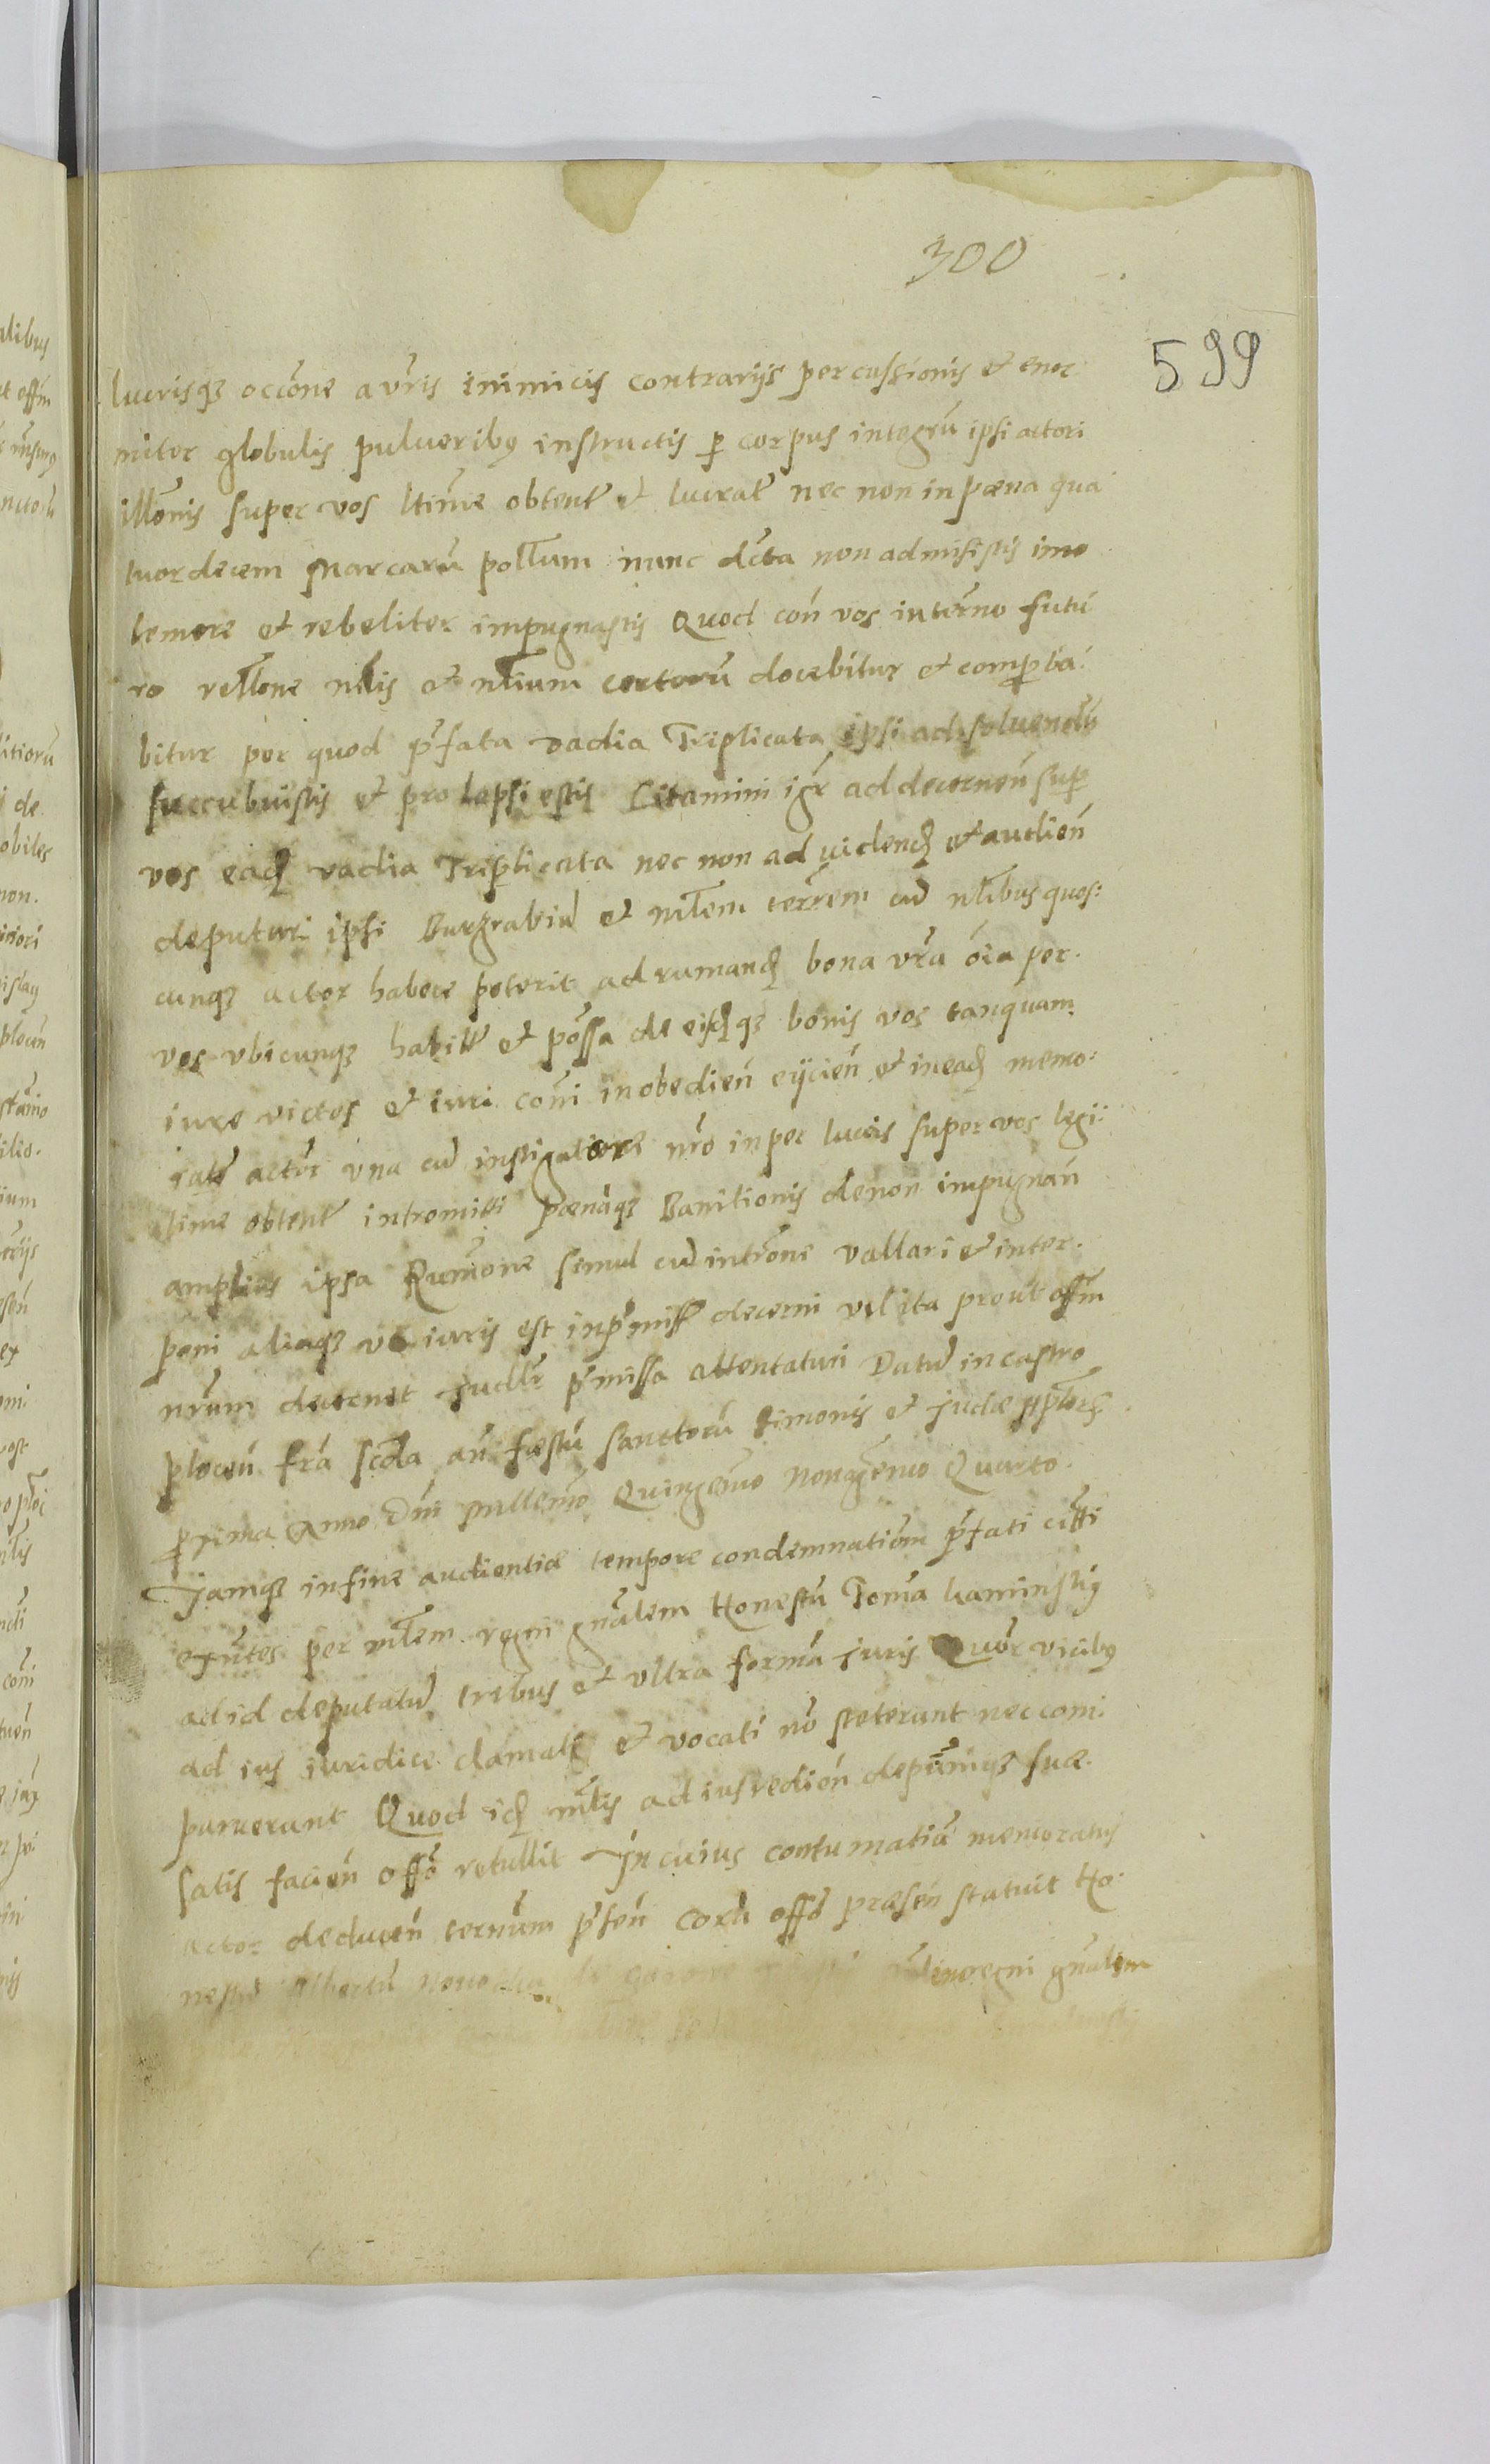 300
599
lucrisqȝ occōne avr̄is inimicis contrarijs percussionis et enor
miter globulis pulueribꝫ instructis ꝑ corpus integrū ipsi actori
illōnis super vos ltīme obtent̄ et lucrat̄ nec non in pæna qua
tuordecem Marcarū polłum nunc dcta non admisistis imo
temere et rebeliter impugnastis Quod con̄ vos in termo futu
ro rełłone młis et młium certorū docebitur et comꝓba
bitur per quod p̄fata vadia Triplicata ipsi ad soluendū
succubuistis et prolapsi estis Citamini igr̄ ad decernen̄ suꝑ
vos ead vadia Triplicata nec non ad uidend et audien̄
deputari ipsi Burgrabiū et młem terr̄em cū młibus quos:
cunqȝ actor habere poterit ad rumand bona vr̄a ōia per
vos vbicunqȝ habit̄ et pōssa de eisdqȝ bonis vos tanquam
iure victos et iuri cōni inobedien̄ eijcien̄ et in ead memo:
rat̄ actor̄ vna cū instigatore nr̄o in per lucris super vos legi:
time obtent̄ intromitti pænāqȝ Banitionis de non impugnan̄
amplius ipsa Rum̄one simul cū intr̄one vallari et inter
poni aliaqȝ vt iuris est in p̄miss̄ decerni vel ita prout off̄m
nr̄um decernet Judłr p̄missa attentaturi Datū in castro
plocen̄ fr̄a scda an̄ fæstū sanctorū Simonis et Judæ Apłorꝝ
ꝓxima Anno Dn̄i Millemō Quingēmo Nonagēmo Quarto
Jamqȝ in fine audientiæ tempore condemnatiōm p̄fati citti
exn̄tes per młem regni gn̄alem Honestū Tomā kaminski
ad id deputatū tribus et vltra formā juris Quōr vicibꝫ
ad ius iuridice clamati et vocati nō steterunt nec com
paruerunt Quod id młis ad ius redien̄ deptīoniqȝ suæ
satis facien̄ offō retullit In cuius contumatiā memoratus
actor deducen̄ termūm p̄sen̄ corā offō præsen̄ statuit Ho
nestū Albertū młem regni gn̄alem